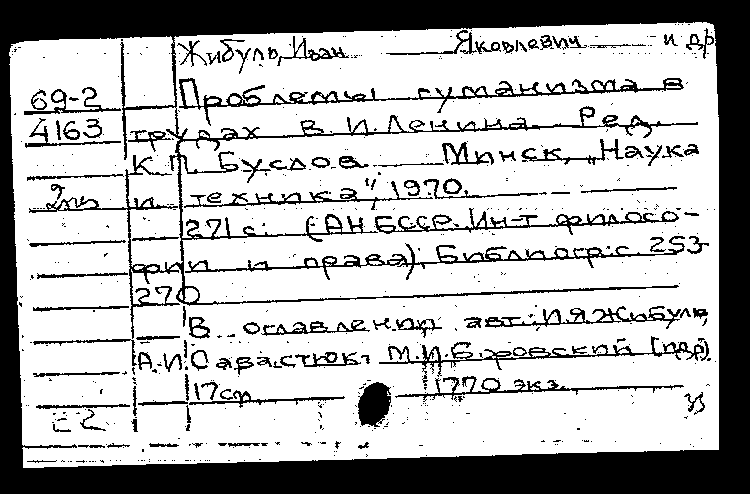 Жибуль, Иван Яковлевич и др
69-2 Проблемы гуманизма в
4163 трудах В. И. Ленина. Ред.
К. П. Буслов. Минск, „Наука
и техника", 1970.
271 с. (АН БССР. Ин-т филосо-
фии и права). Библиогр: с. 253-
270
В оглавлении авт.: И. Я. Жибуль,
А. И. Савастюк, М. И. [и др]
17ср. 1770 экз.